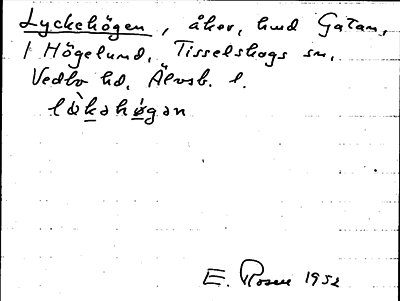 Lyckehögen, åker, hmd Gatan,
1 Högelund, Tisselskogs sn,
Vedbo hd, Älvsb. l.
E. Rosen 1952